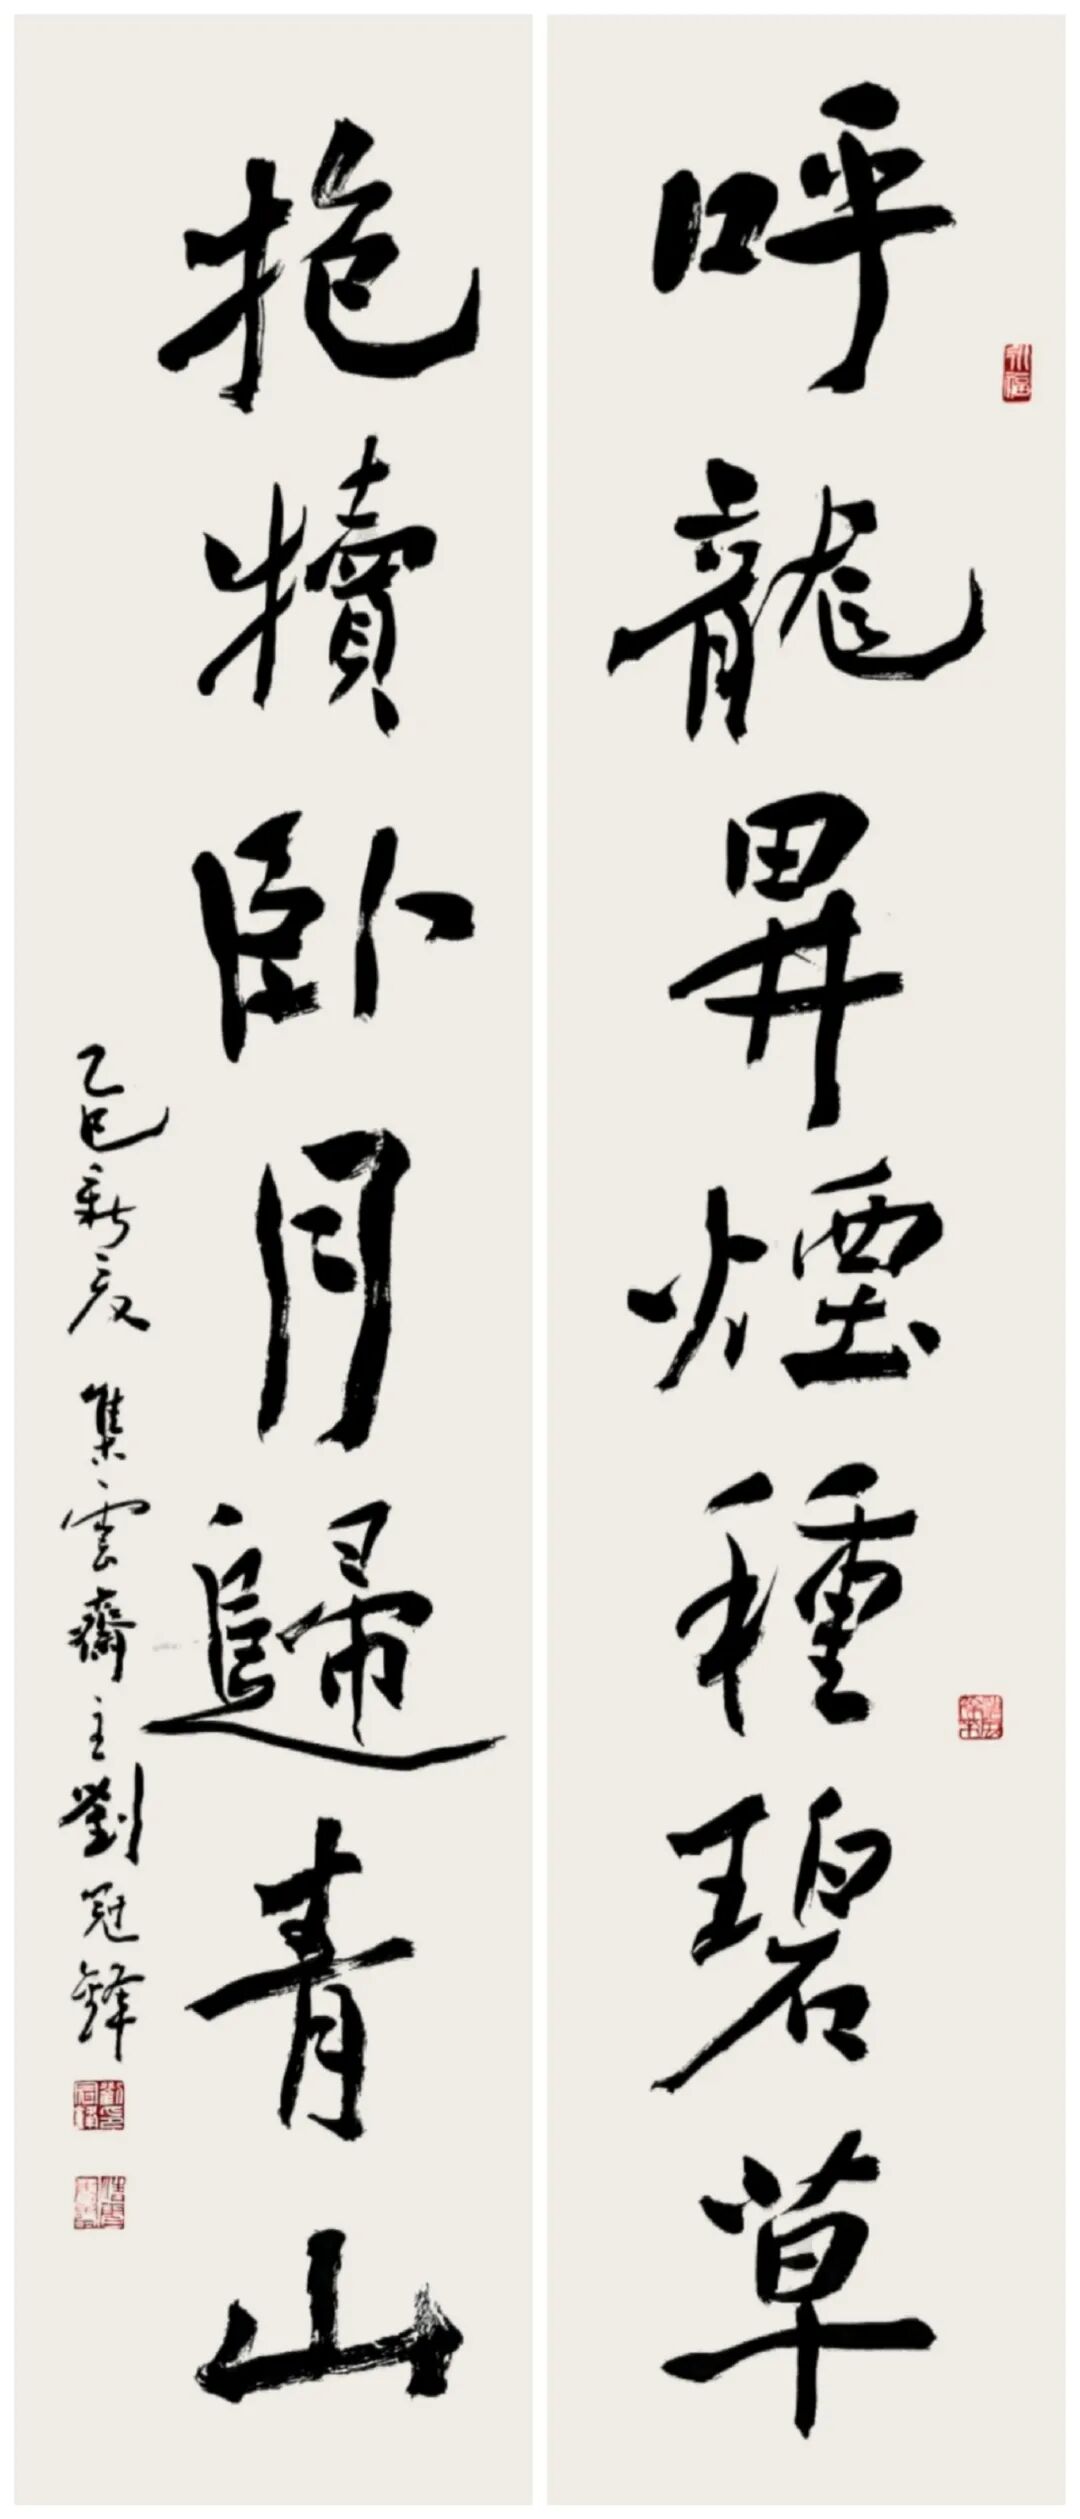 呼龍畊煙種碧草
抱犢卧月歸青山
乙巳新夏 集雲齋主劉冠鋒